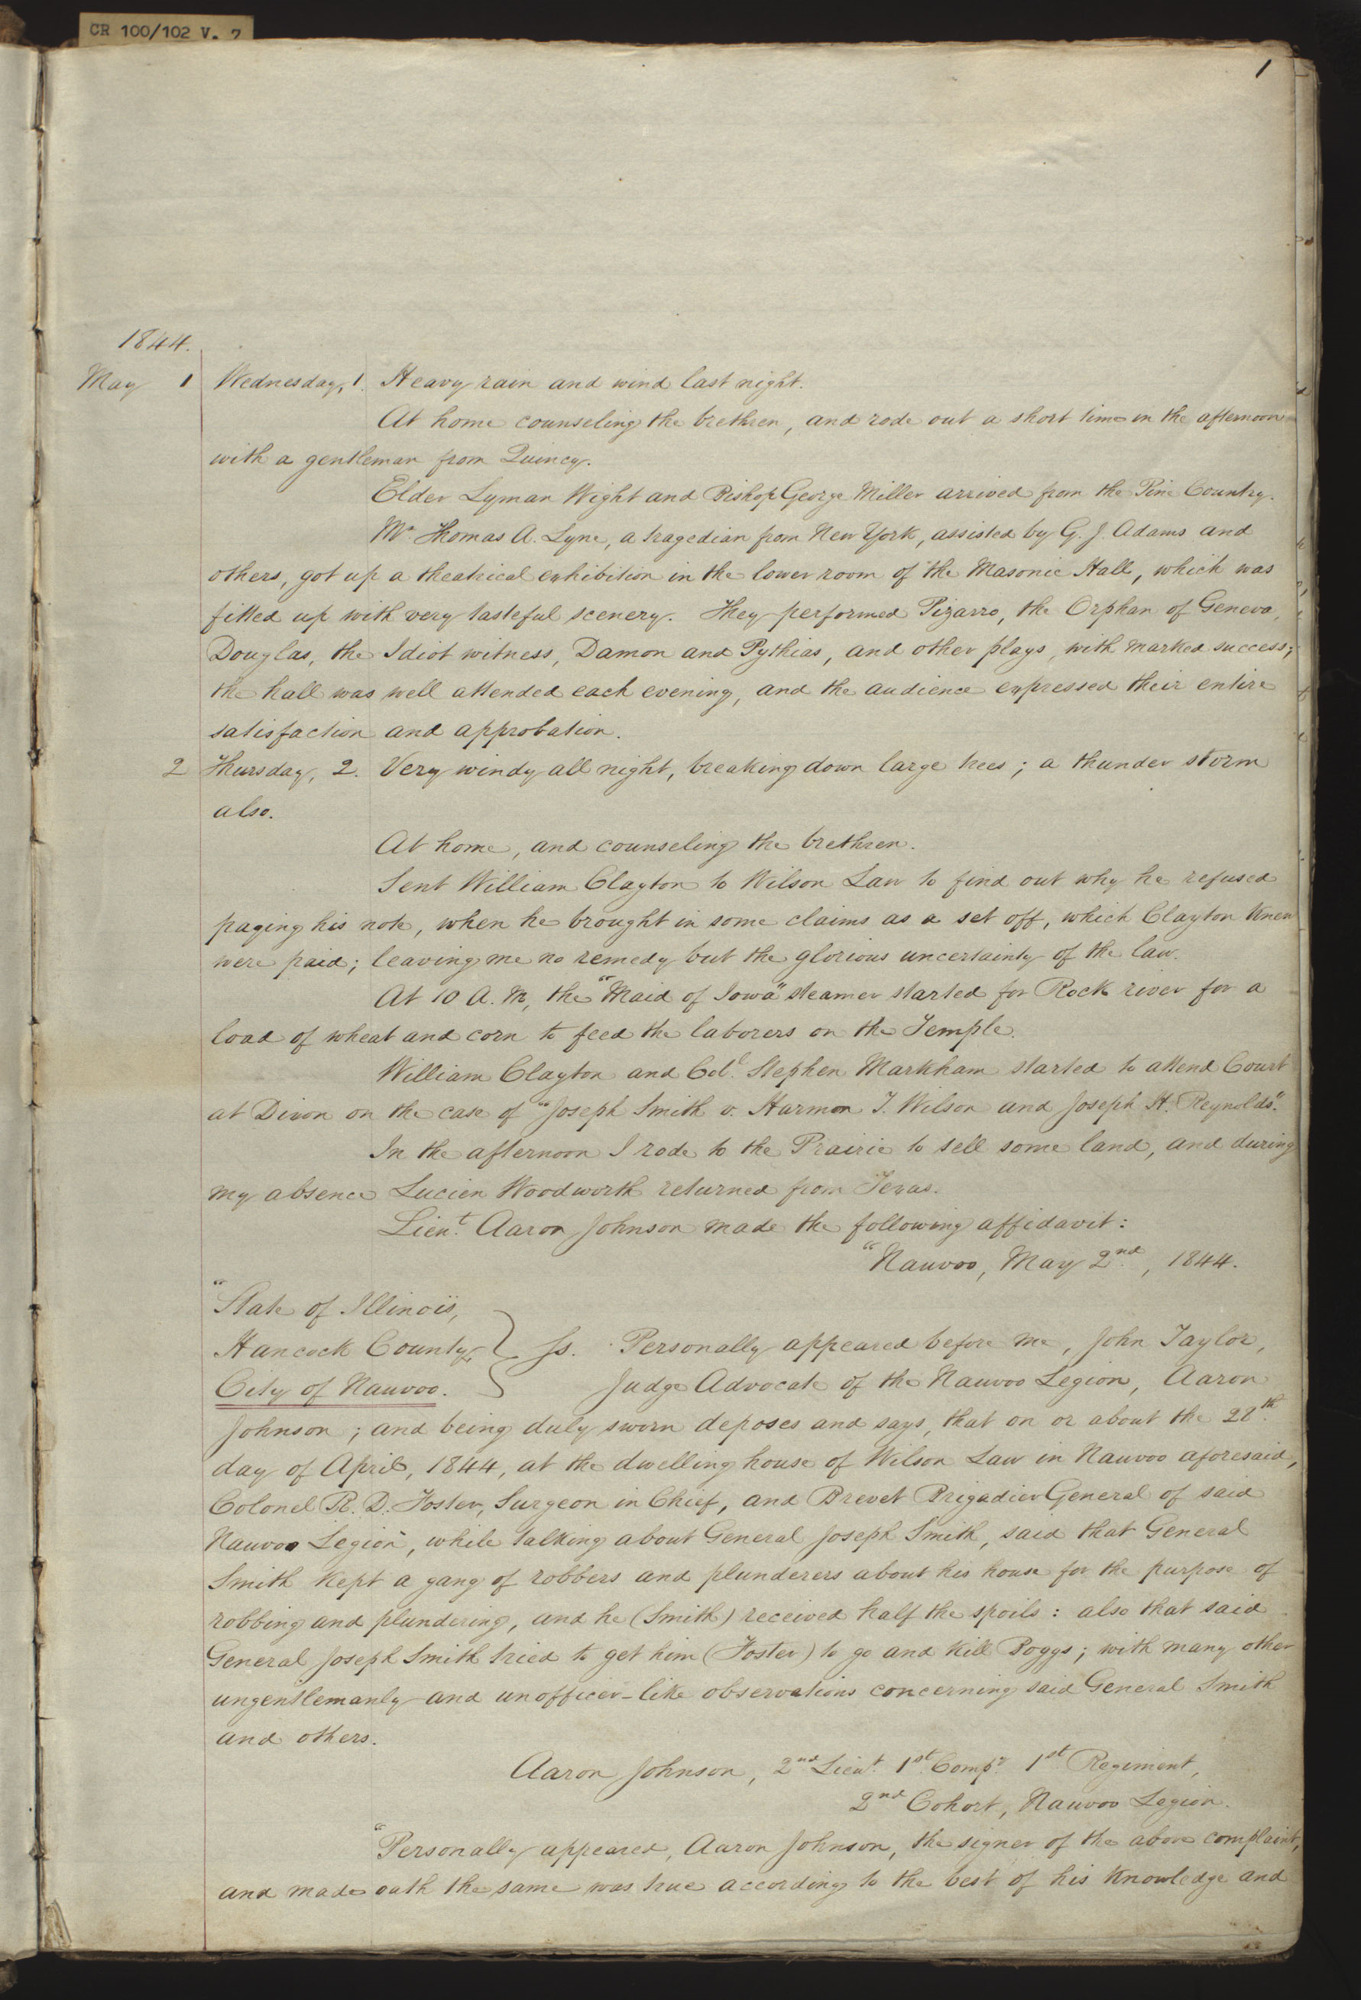 CR 100/102 V. 7
1
1844.
May 1 Wednesday, 1. Heavy rain and wind last night.
At home counseling the brethren, and rode out a short time in the afternoon
with a gentleman from Quincy.
Elder Lyman Wight and Bishop George Miller arrived from the Pine Country.
Mr Thomas A. Lyne, a tragedian from New York, assisted by G. J. Adams and
others, got up a theatrical exhibition in the lower room of the Masonic Hall, which was
fitted up with very tasteful scenery. They performed Pizarro, the Orphan of Geneva,
Douglas, the Idiot witness, Damon and Pythias, and other plays, with marked success;
the hall was well attended each evening, and the audience expressed their entire
satisfaction and approbation.
2 Thursday, 2. Very windy all night, breaking down large trees; a thunder storm
also.
At home, and counseling the brethren.
Sent William Clayton to Wilson Law to find out why he refused
paying his note, when he brought in some claims as a set off, which Clayton knew
were paid; leaving me no remedy but the glorious uncertainty of the law.
At 10 A. M, the "Maid of Iowa" steamer started for Rock river for a
load of wheat and corn to feed the laborers on the Temple.
William Clayton and Col. Stephen Markham started to attend Court
at Dixon on the case of "Joseph Smith v. Harmon T. Wilson and Joseph H. Reynolds".
In the afternoon I rode to the Prairie to sell some land, and during
my absence Lucien Woodworth returned from Texas.
Lieut. Aaron Johnson made the following affidavit:
"Nauvoo, May 2nd, 1844.
"State of Illinois,
Hancock County, } Ss. Personally appeared before me, John Taylor,
City of Nauvoo. Judge Advocate of the Nauvoo Legion, Aaron
Johnson; and being duly sworn deposes and says, that on or about the 28th.
day of April, 1844, at the dwelling house of Wilson Law in Nauvoo aforesaid,
Colonel R. D. Foster, Surgeon in Chief, and Brevet Brigadier General of said
Nauvoo Legion, while talking about General Joseph Smith, said that General
Smith kept a gang of robbers and plunderers about his house for the purpose of
robbing and plundering, and he (Smith) received half the spoils: also that said
General Joseph Smith tried to get him (Foster) to go and kill Boggs; with many other
ungentlemanly and unofficer-like observations concerning said General Smith
and others.
Aaron Johnson, 2nd Lieut. 1st Compy. 1st Regiment,
2nd Cohort, Nauvoo Legion.
"Personally appeared, Aaron Johnson, the signer of the above complaint,
and made oath the same was true according to the best of his knowledge and